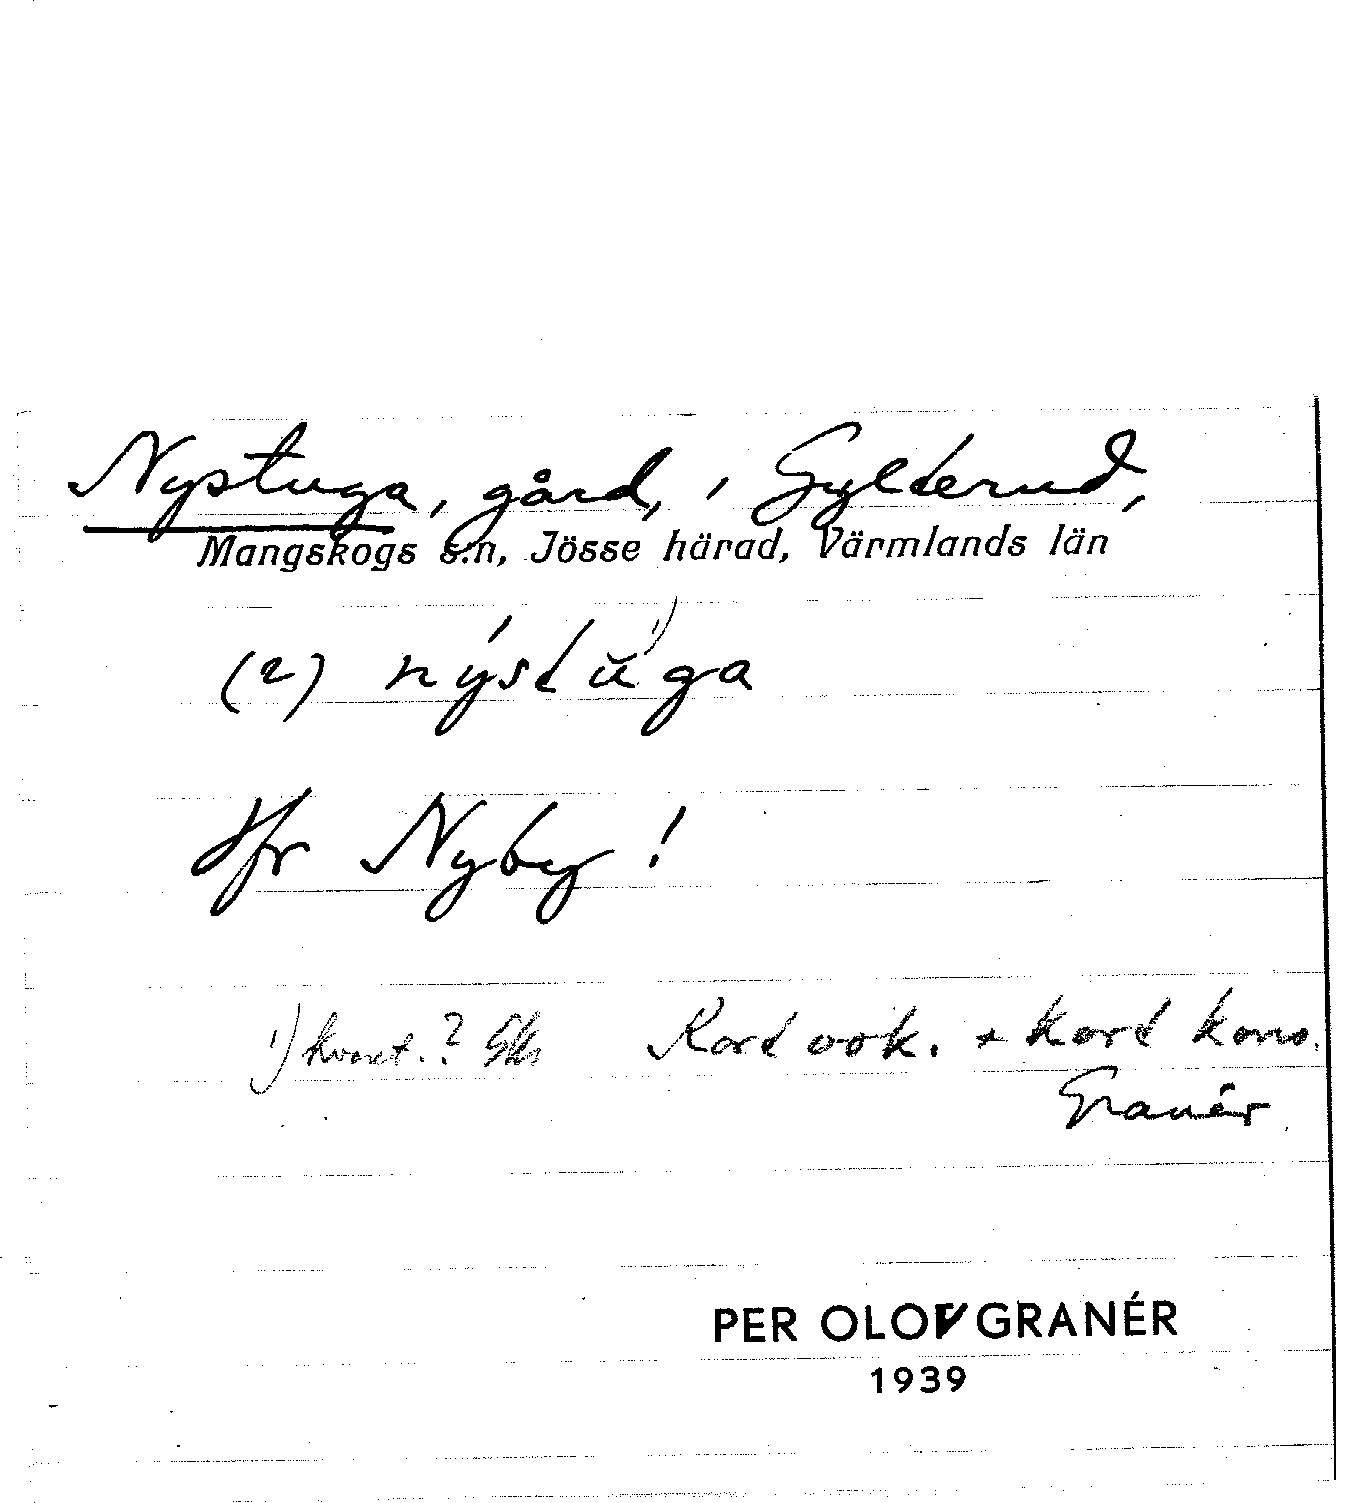 Nystuga, gård, i Gylterud,
Mangskogs s:n, Jösse härad, Värmlands län
(2) nýstŭ̀ga 1)
Jfr Nyby!
1) kvant.? Kort vok. + kort kons.
Granér
PER OLOV GRANÉR
1939